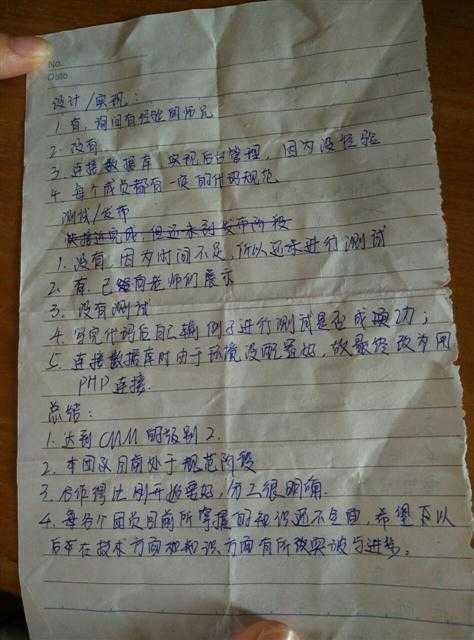 No.
Date
设计/实现:
1. 有,询问有经验的师兄
2. 没有
3. 连接数据库,实现后台管理,因为没经验
4. 每个成员都有一定的代码规范
测试/发布
1. 没有,因为时间不足,所以还未进行测试
2. 有,已经向老师们展示
3. 没有测试
4. 写完代码后自己输例子进行测试是否成功;
5. 连接数据库时由于环境没配置好,故最终改为用
PHP连接.
总结:
1. 达到CMM的级别2.
2. 本团队目前处于规范阶段
3. 合作得比刚开始要好,分工很明确.
4. 每个团员目前所掌握的知识还不全面,希望可以
在技术方面和知识方面有所与进步。